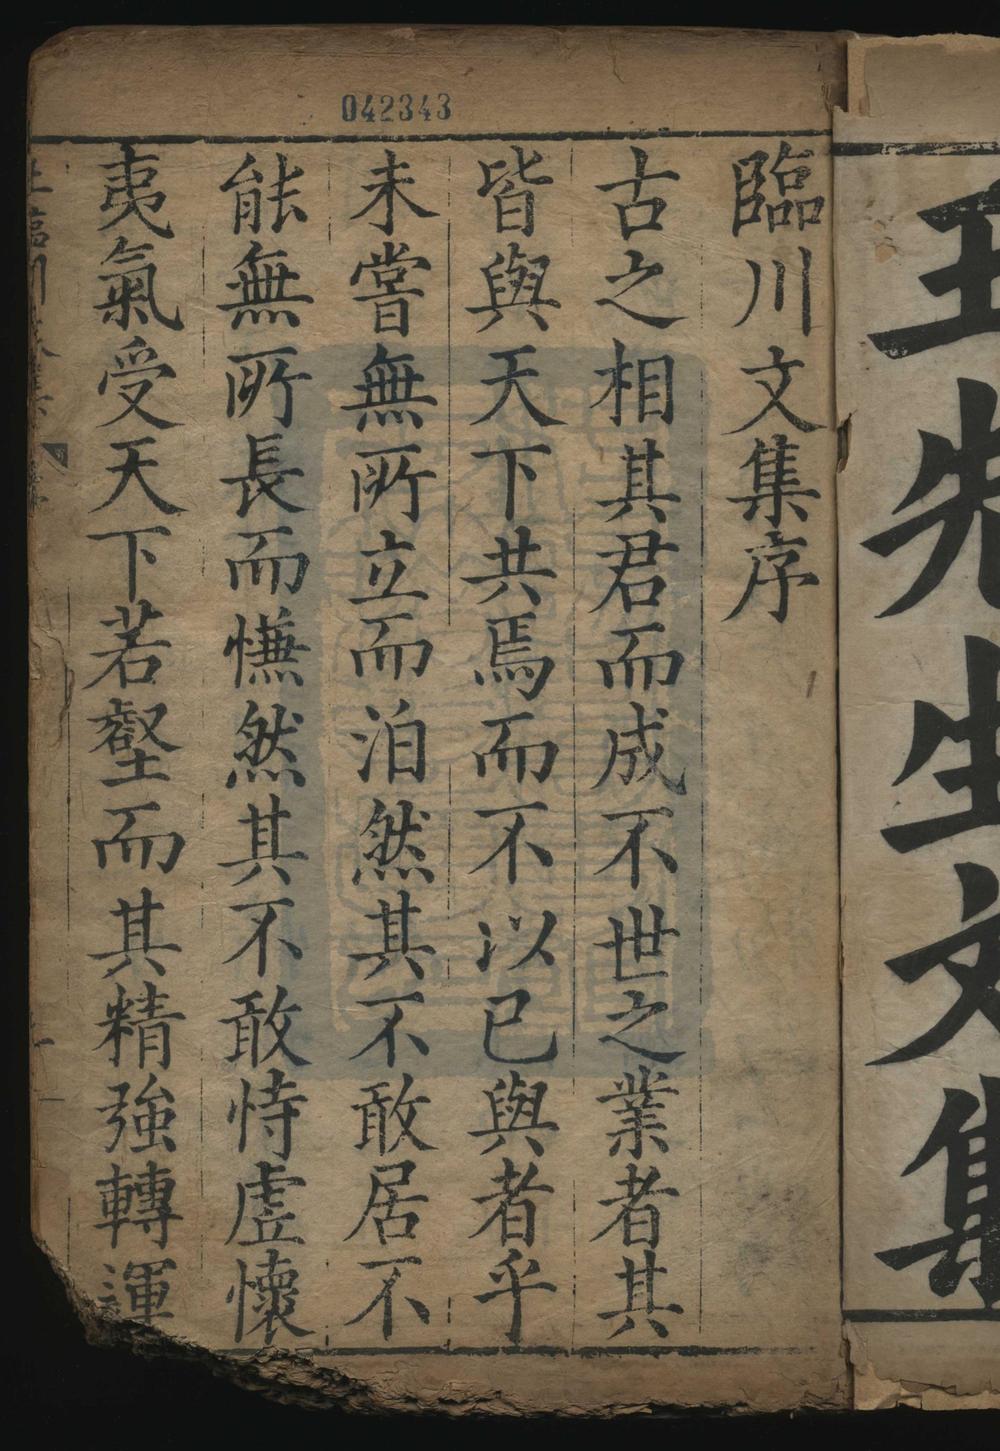 王先生文集
臨川文集序
古之相其君而成不世之業者其
皆與天下共焉而不以已與者乎
未嘗無所立而泊然其不敢居不
能無所長而慊然其不敢恃虛懷
夷氣受天下若壑而其精強轉運
042343